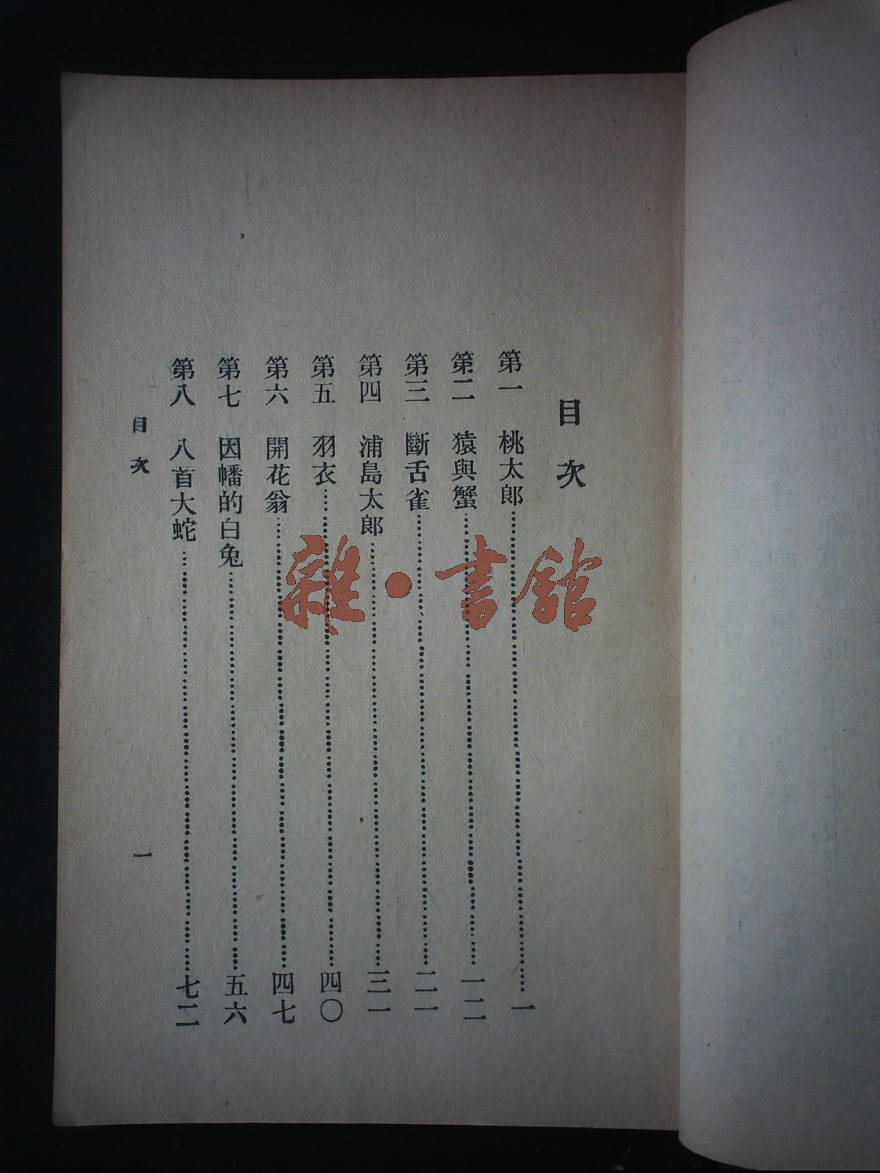 目次
第一 桃太郎……一
第二 猿與蟹……一二
第三 斷舌雀……二一
第四 浦島太郎……三一
第五 羽衣……四〇
第六 開花翁……四七
第七 因幡的白兔……五六
第八 八首大蛇……七二
目次 一
雜·書館